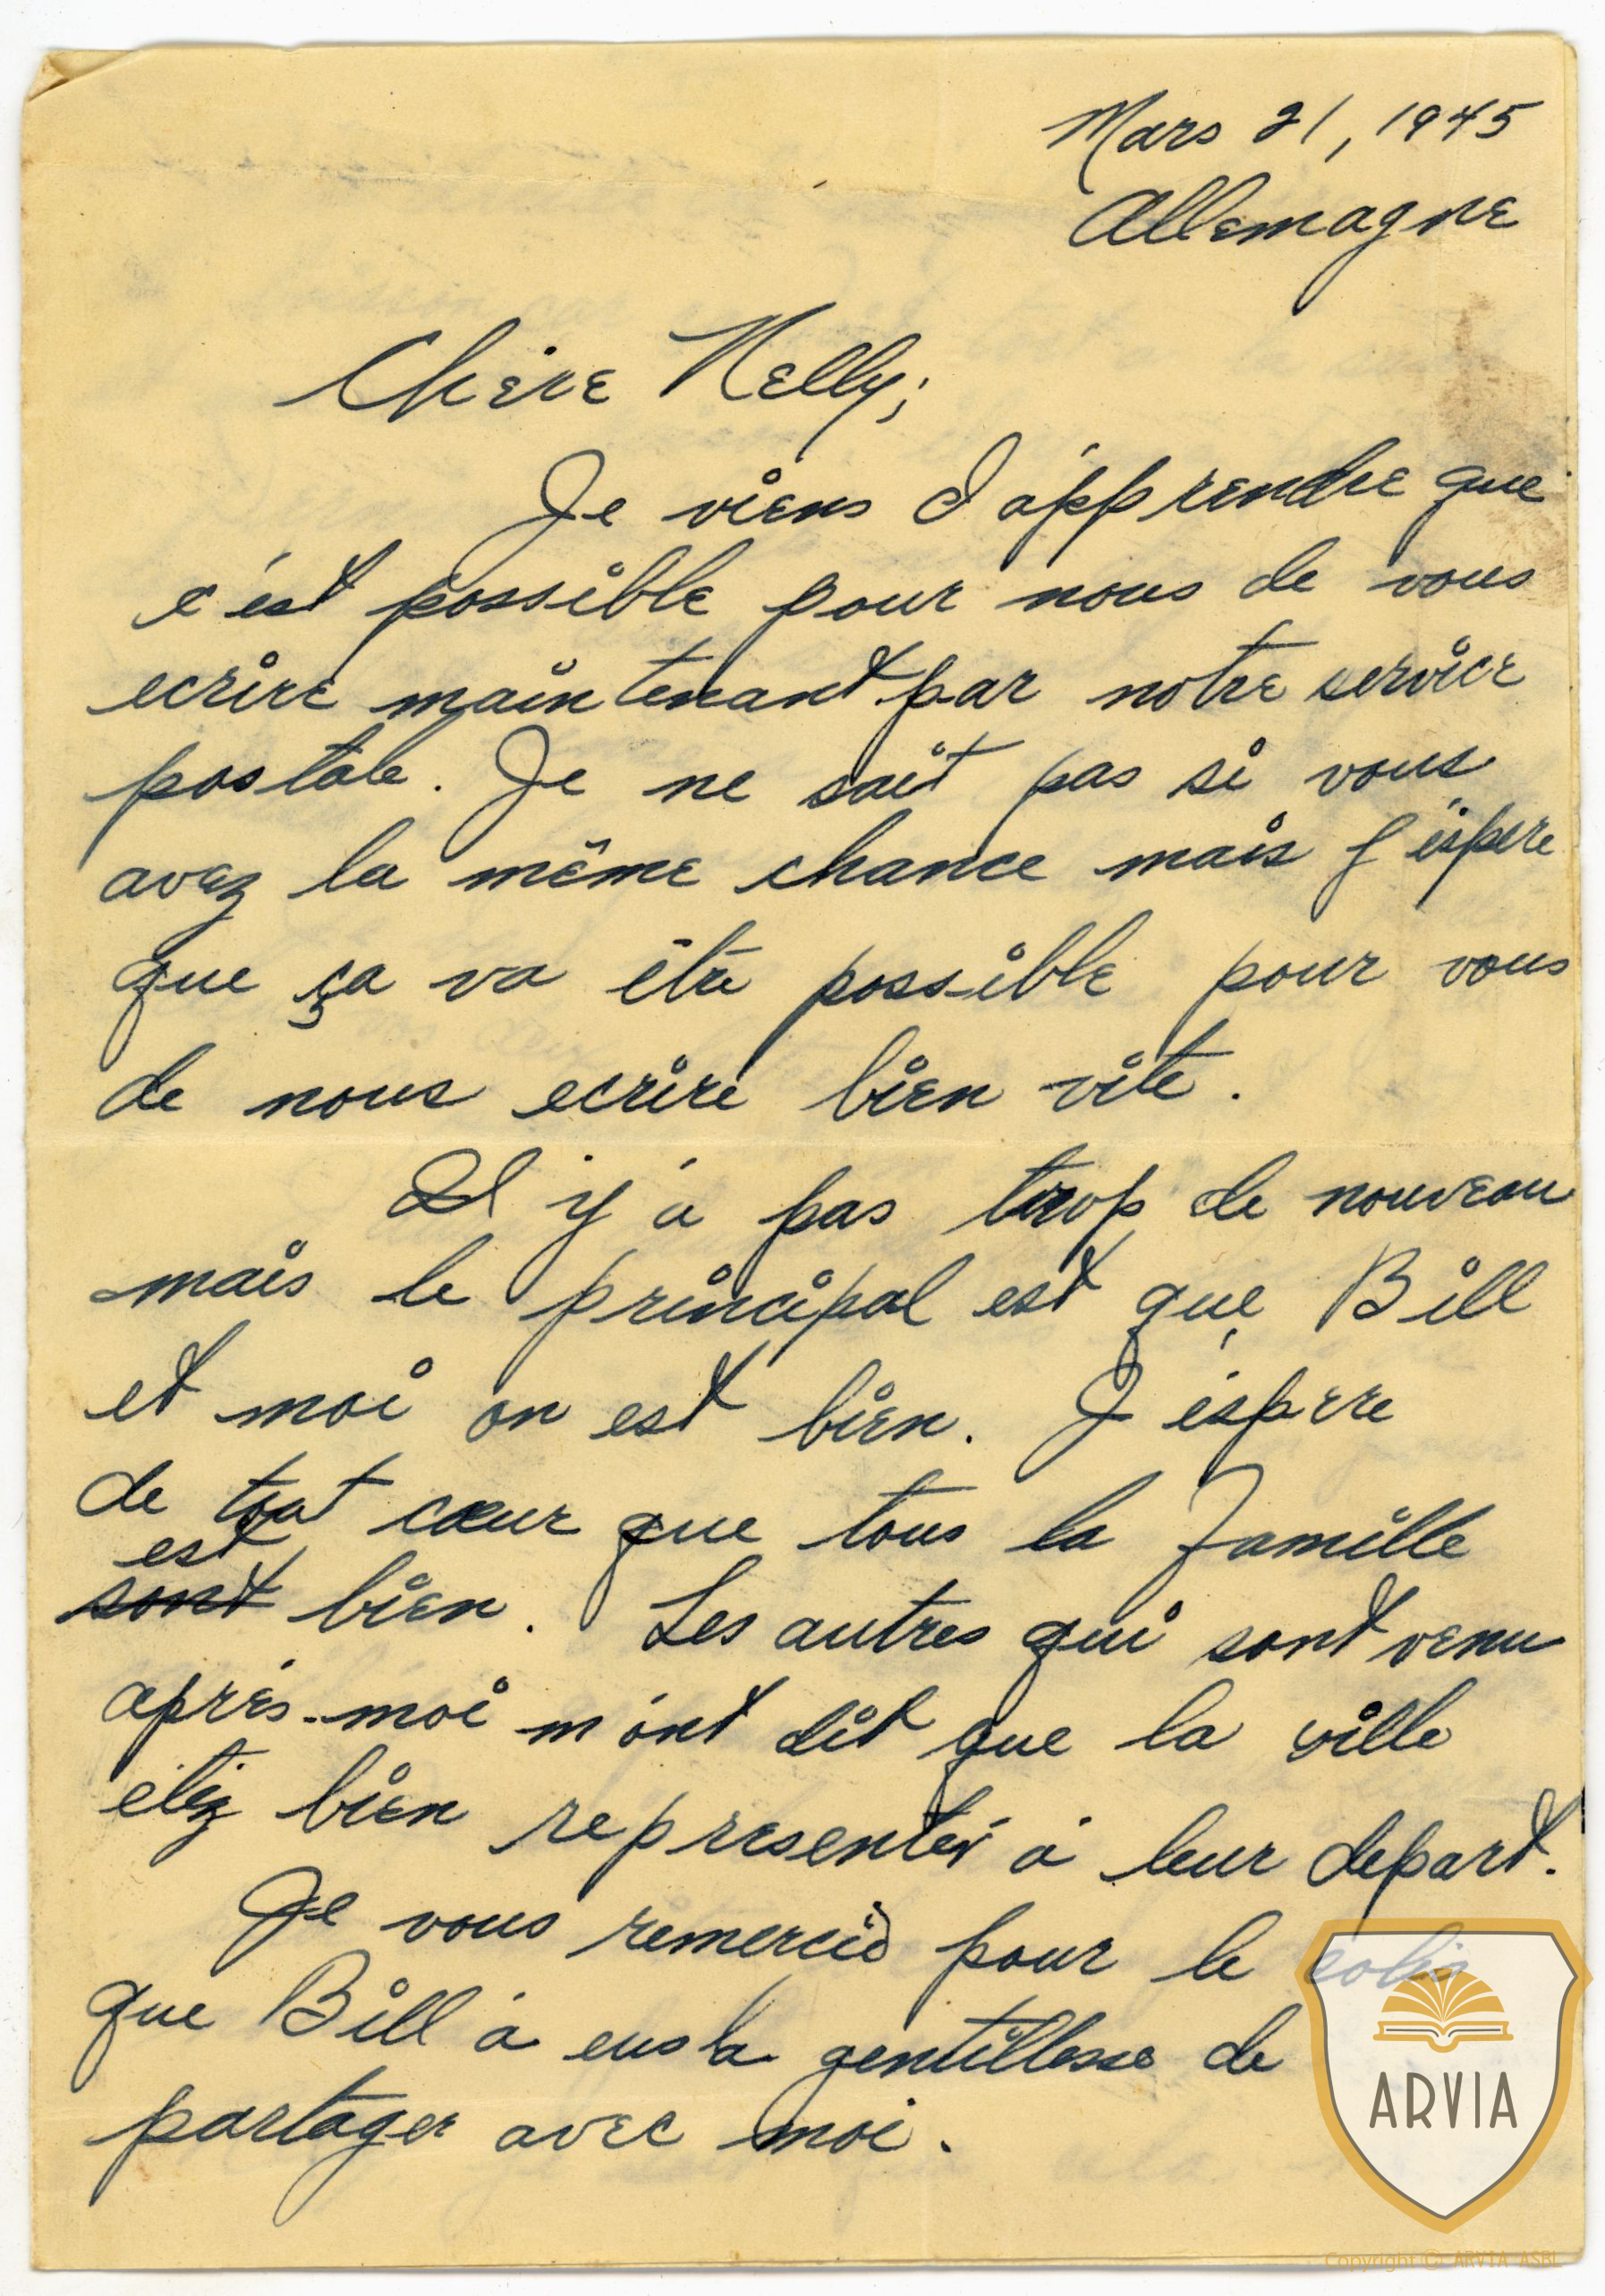 Mars 21, 1945
Allemagne
Chère Nelly;
Je viens d'apprendre que
c'est possible pour nous de vous
ecrire maintenant par notre service
postale. Je ne sait pas si vous
avez la même chance mais j'éspere
que ça va être possible pour vous
de nous ecrire bien vite.
Il y á pas trop de nouveau
mais le principal est que Bill
et moi on est bien. J'éspere
de tout cœur que tous la famille
est
sont bien. Les autres qui sont venu
aprés-moi m'ont dit que la ville
etez bien representér á leur depart.
Je vous remercie pour le colis
que Bill á eus la gentillesse de
partager avec moi.
ARVIA
Copyright © ARVIA ASBL